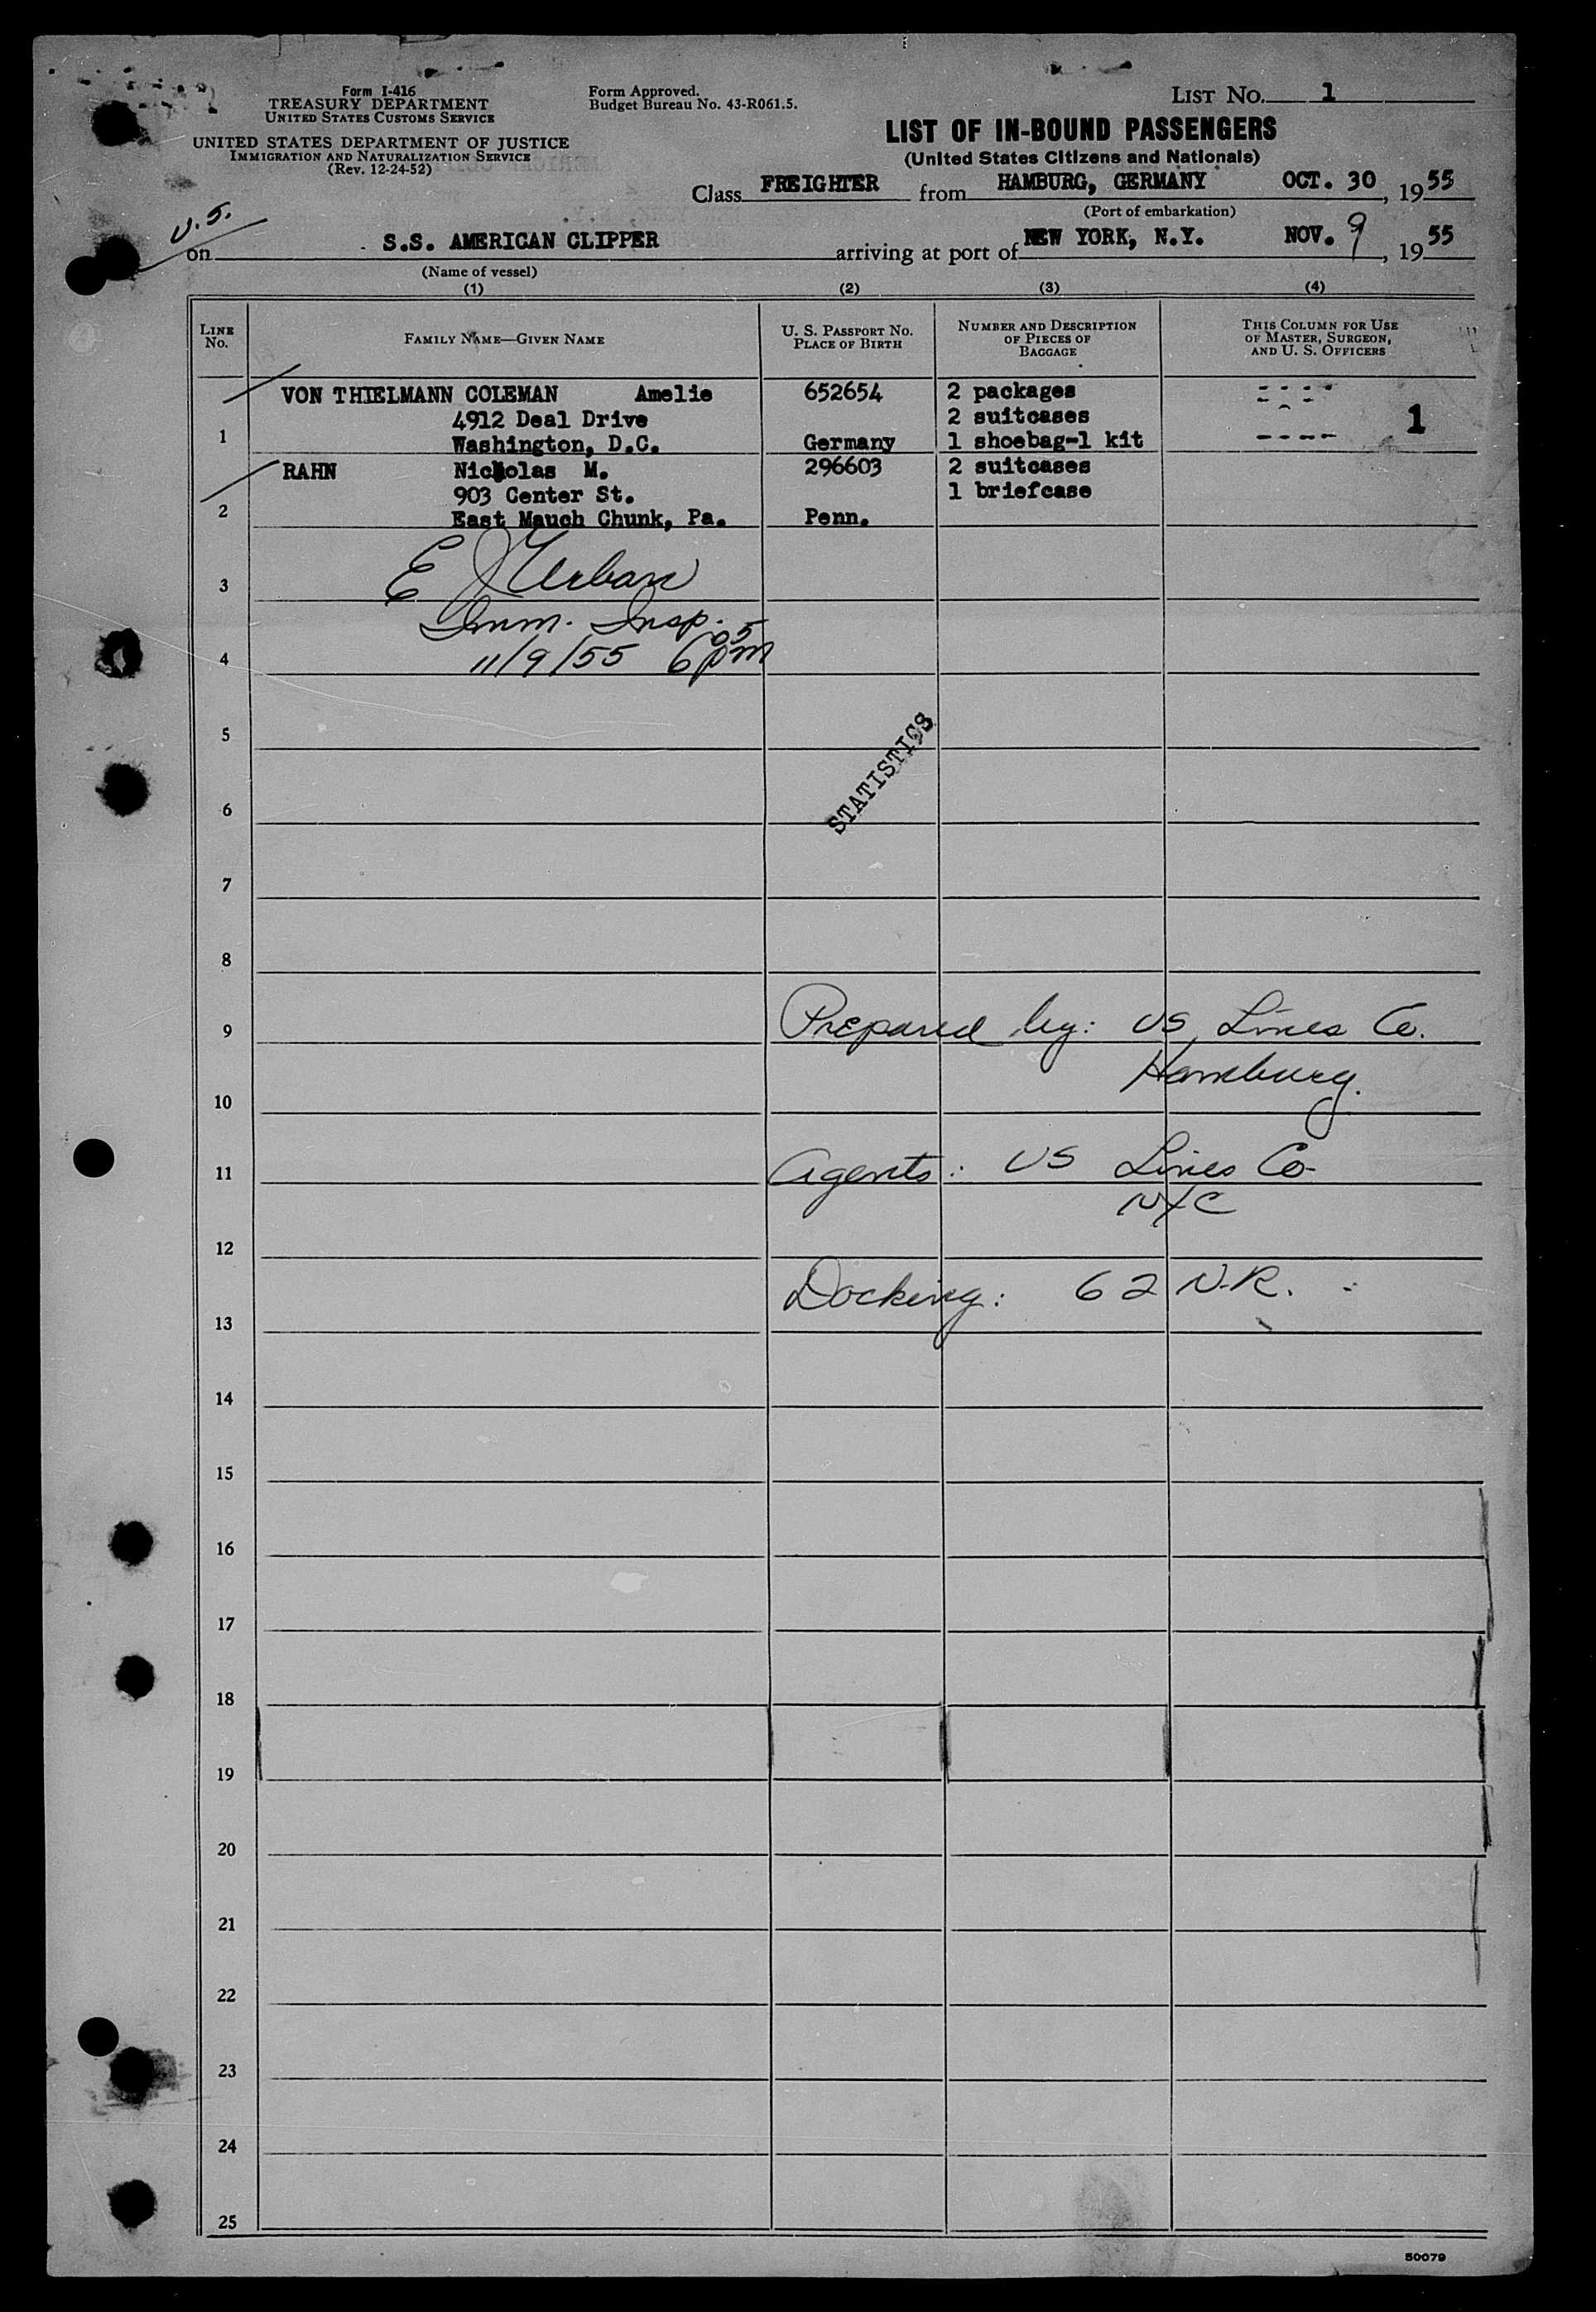 Form I-416
TREASURY DEPARTMENT
UNITED STATES CUSTOMS SERVICE
UNITED STATES DEPARTMENT OF JUSTICE
IMMIGRATION AND NATURALIZATION SERVICE
(Rev. 12-24-52)
Form Approved.
Budget Bureau No. 43-R061.5.
LIST No. 1
LIST OF IN-BOUND PASSENGERS
(United States Citizens and Nationals)
Class FREIGHTER from HAMBURG, GERMANY OCT. 30, 1955
(Port of embarkation)
U.S.
on S.S. AMERICAN CLIPPER arriving at port of NEW YORK, N.Y. NOV. 9, 1955
(Name of vessel)
(1) (2) (3) (4)
LINE No. FAMILY NAME—GIVEN NAME U. S. PASSPORT No. PLACE OF BIRTH NUMBER AND DESCRIPTION OF PIECES OF BAGGAGE THIS COLUMN FOR USE OF MASTER, SURGEON, AND U. S. OFFICERS
VON THIELMANN COLEMAN Amelie 652654 2 packages
4912 Deal Drive 2 suitcases 1
1 Washington, D.C. Germany 1 shoebag-1 kit
RAHN Nicholas M. 296603 2 suitcases
903 Center St. 1 briefcase
2 East Mauch Chunk, Pa. Penn.
3 E J Urban
Imm. Insp.
4 11/9/55 6 05 pm
5
STATISTICS
6
7
8
9 Prepared by: US Lines Co.
Hamburg.
10
11 Agents: US Lines Co-
NYC
12
Docking: 62 N.R.
13
14
15
16
17
18
19
20
21
22
23
24
25
50079